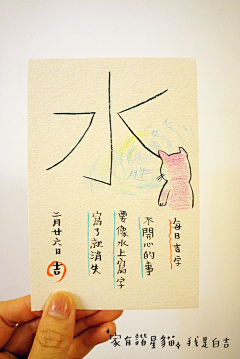 水
每日吉字
不開心的事
要像水上寫字
寫了就消失
二月廿六日
吉
家有諧星貓 我是白吉